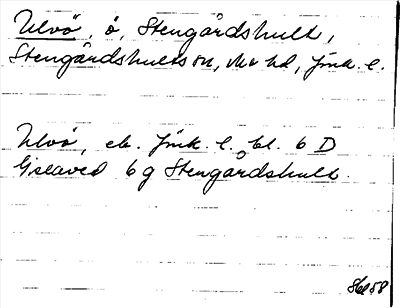 Ulvö, ö, Stengårdshult,
Stengårdshults sn, Mo hd, Jönk. l.
Ulvö, ek. Jönk. l. bl. 6 D
Gislaved 6 g Stengårdshult.